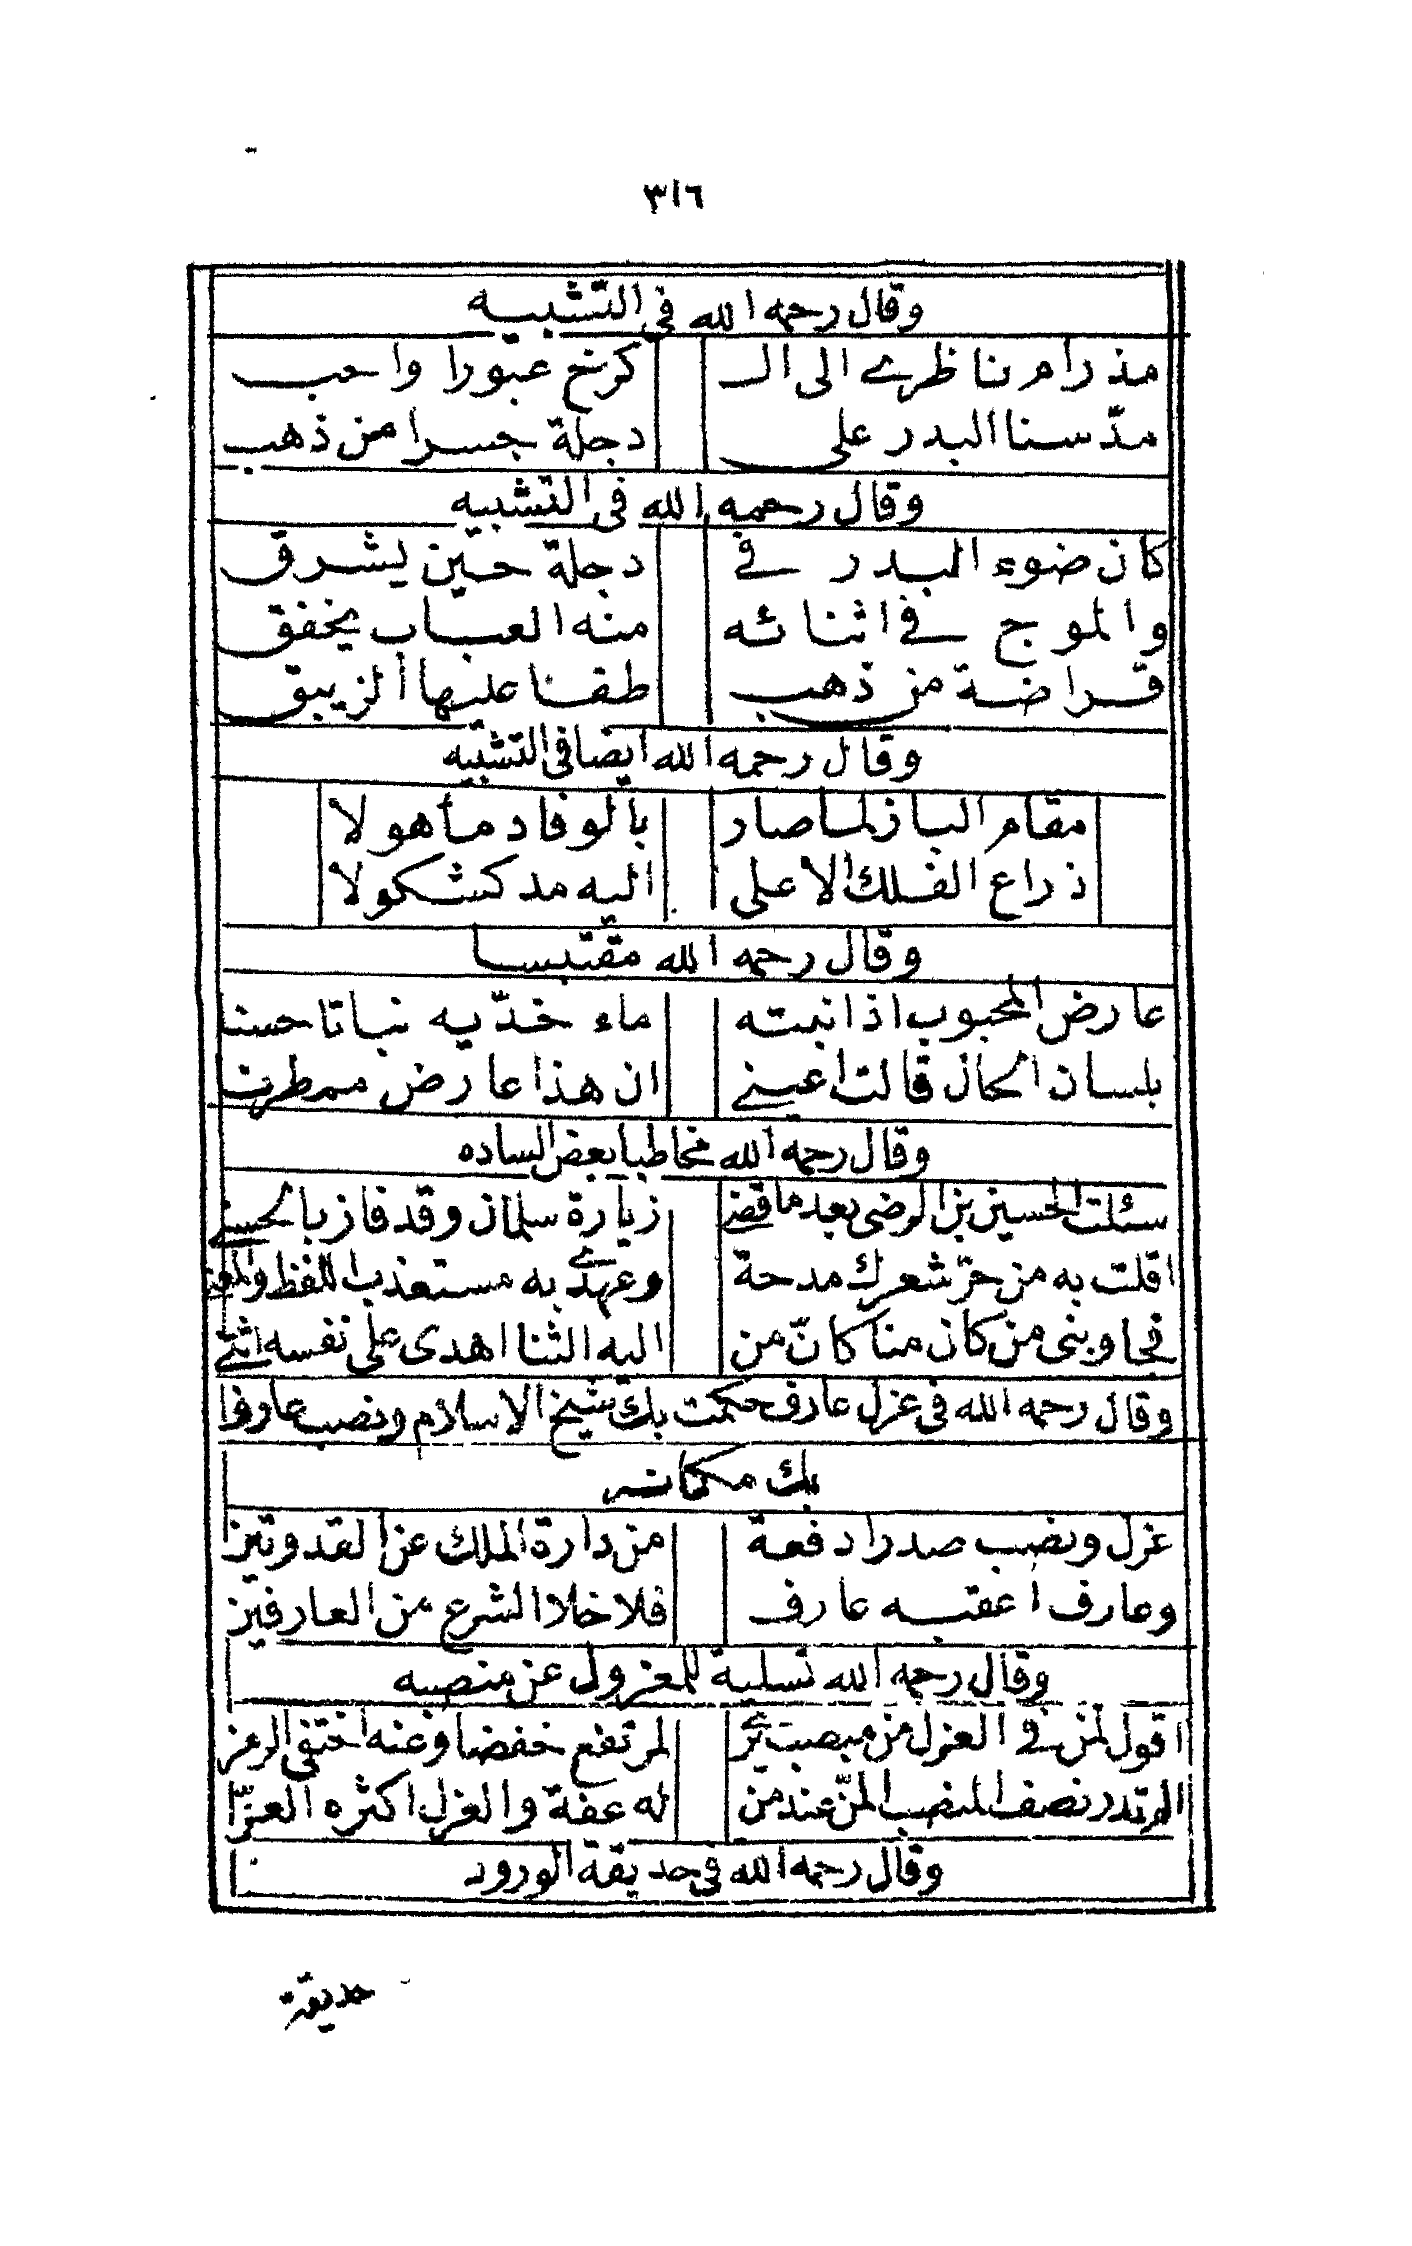 ٣١٦
وقال رحمه الله فى التشبيه
مذ رام ناظرے الى الـ كرخ عبورا واحب
مدّ سنا البدر على دجلة جسرا من ذهب
وقال رحمه الله فى التشبيه
كان ضوء البدر فے دجلة حين يشرق
والموج فے اثنائه منه العباب يخفق
قراضة من ذهب طفنا عليها الزيبق
وقال رحمه الله ايضا فى التشبيه
مقام الباز لما صار بالوفاد مأهولا
ذراع الفلك الاعلى اليه مد كشكولا
وقال رحمه الله مقتبسا
عارض المحبوب اذ انبته ماء خدّيه نباتا حسنا
بلسان الحال قالت اعينے ان هذا عارض ممطرنا
وقال رحمه الله مخاطبا بعض الساده
سئلت الحسين بن الرضى بعد ما قضے زيارة سلمان وقد فاز بالحسنے
اقلت به من حرّ شعرك مدحة وعهدے به مستعذب اللفظ والمعنے
فجاوبنى من كان منا كانّ من اليه الثنا اهدى على نفسه اثنے
وقال رحمه الله فى عزل عارف حكمت بك شيخ الاسلام ونصب عارف
بك مكانه
عزل ونصب صدرا دفعة من دارة الملك عن القد وتين
وعارف اعقبه عارف فلا خلا الشرع من العارفين
وقال رحمه الله تسلية للمعزول عن منصبه
اقول لمن فے العزل من مبصبت يرے لمرتفع خفضا وعنه اختفى الرمز
الم تدر نصف المنصب المنّ عند من له عفة والعزل اكثره العزّ
وقال رحمه الله فى حديقة الورود
حديقة